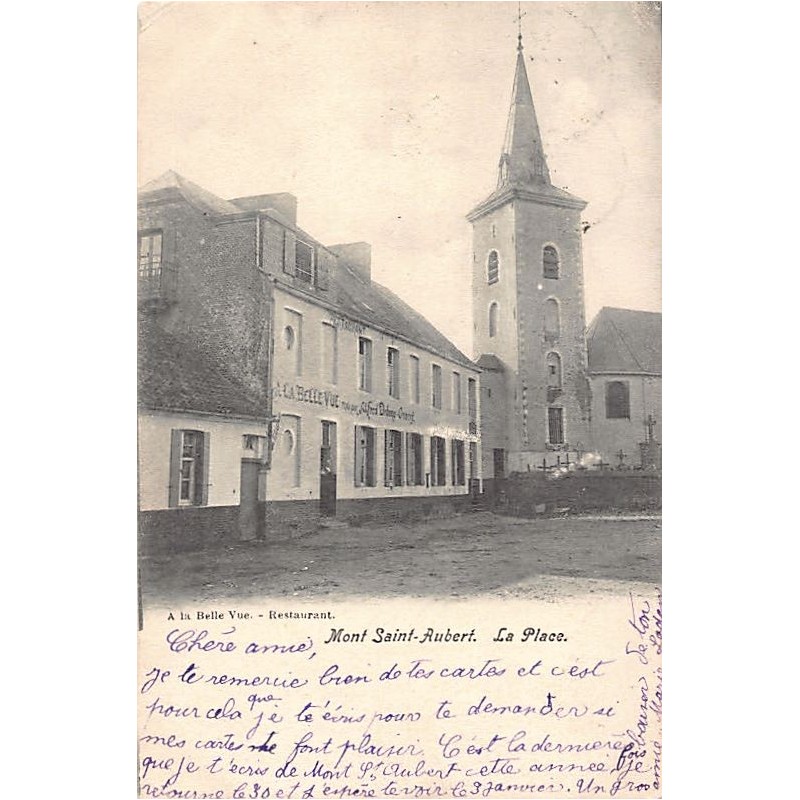 RESTAURANT
A LA BELLE VUE
A la Belle Vue. - Restaurant.
Mont Saint-Aubert. La Place.
Chère amie,
Je te remercie bien de tes cartes et c'est
pour cela que je t'écris pour te demander si
mes cartes te font plaisir. C'est la dernière fois
que je t'écris de Mont St Aubert cette année. Je
retourne le 30 et j'espère te voir le 3 janvier. Un gros
baiser de ton
amie Marie